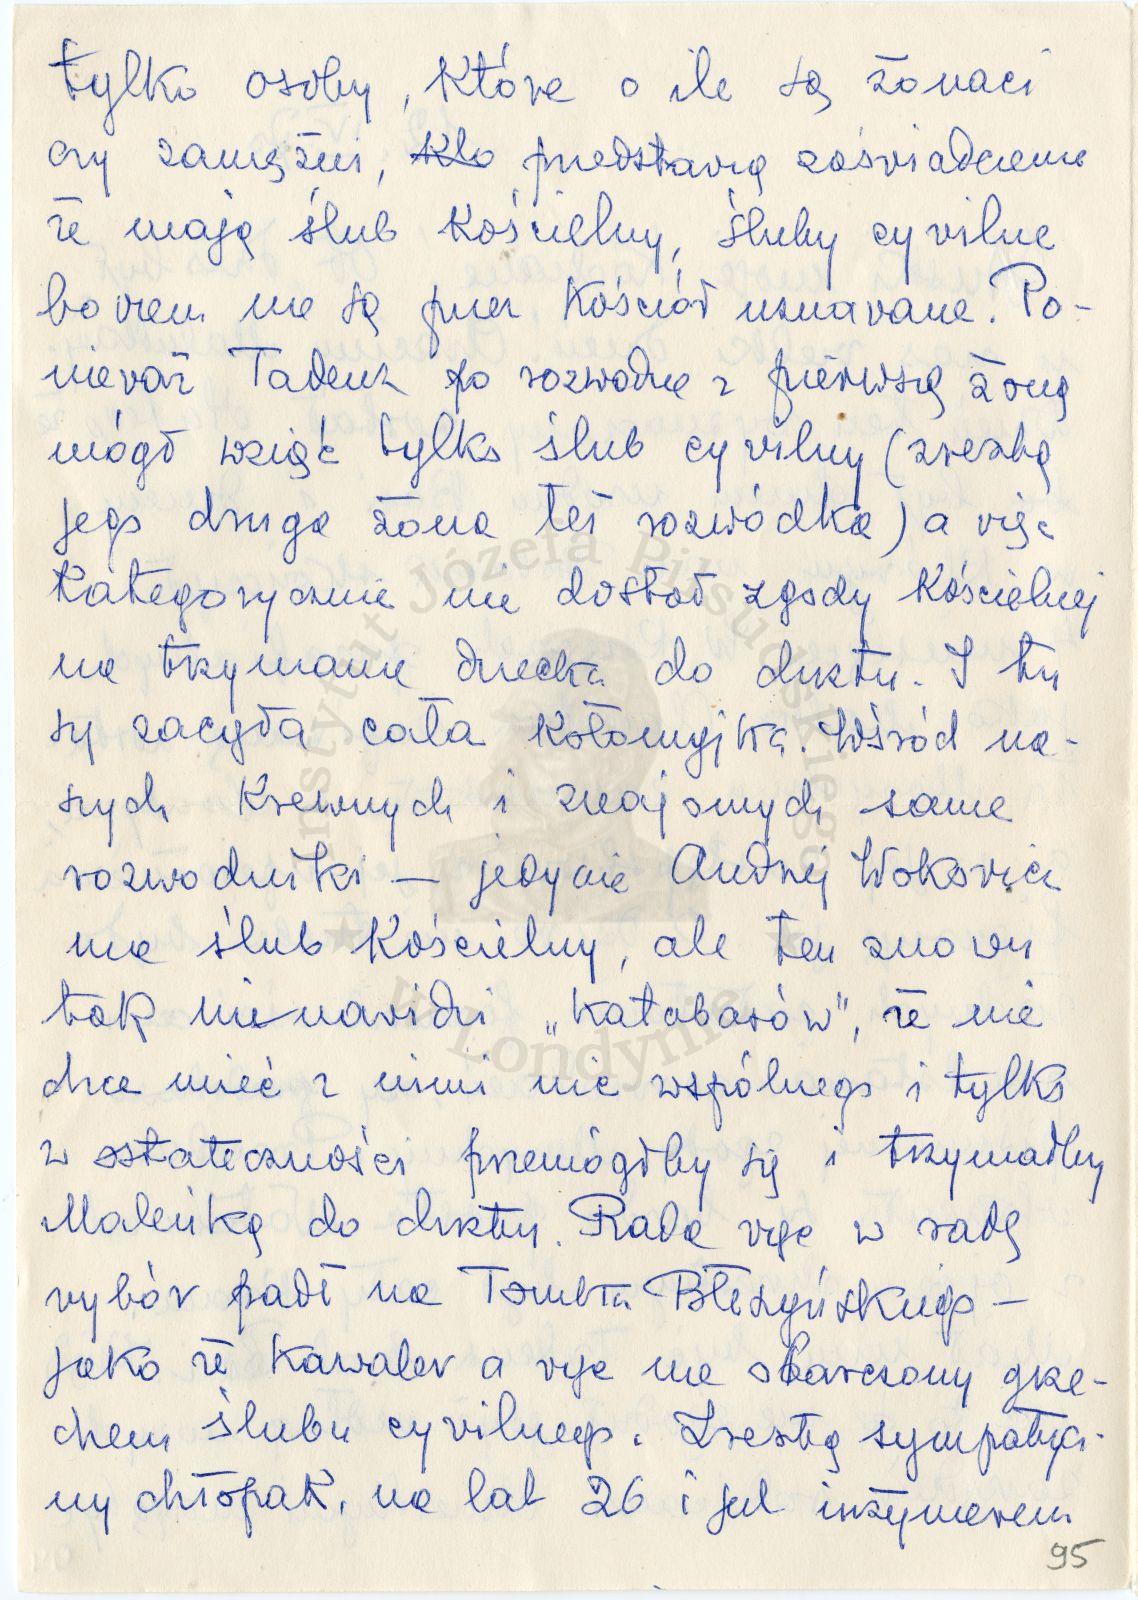 tylko osoby, które o ile są żonaci
czy zamężni, kto przedstawią zaświadczenie
że mają ślub kościelny, śluby cywilne
bowiem nie są przez Kościół uznawane. Po-
nieważ Tadeusz po rozwodzie z pierwszą żoną
mógł wziąść tylko ślub cywilny (zresztą
jego druga żona też rozwódka) a więc
kategorycznie nie dostał zgody kościelnej
na trzymanie dziecka do chrztu. I tu
się zaczęła cała kołomyjka. Wśród na-
szych krewnych i znajomych same
rozwodniki — jedynie Andrzej Wokowicz
ma ślub kościelny, ale ten znowu
tak nienawidzi „katabasów", że nie
chce mieć z nimi nic wspólnego i tylko
w ostateczności przemógłby się i trzymałby
Maleńką do chrztu. Rada więc w radę
wybór padł na Tomka Błeszyńskiego —
jako że kawaler a więc nie obarczony grze-
chem ślubu cywilnego. Zresztą sympatycz-
ny chłopak, ma lat 26 i jest inżynierem
95
Instytut Józefa Piłsudskiego
w Londynie